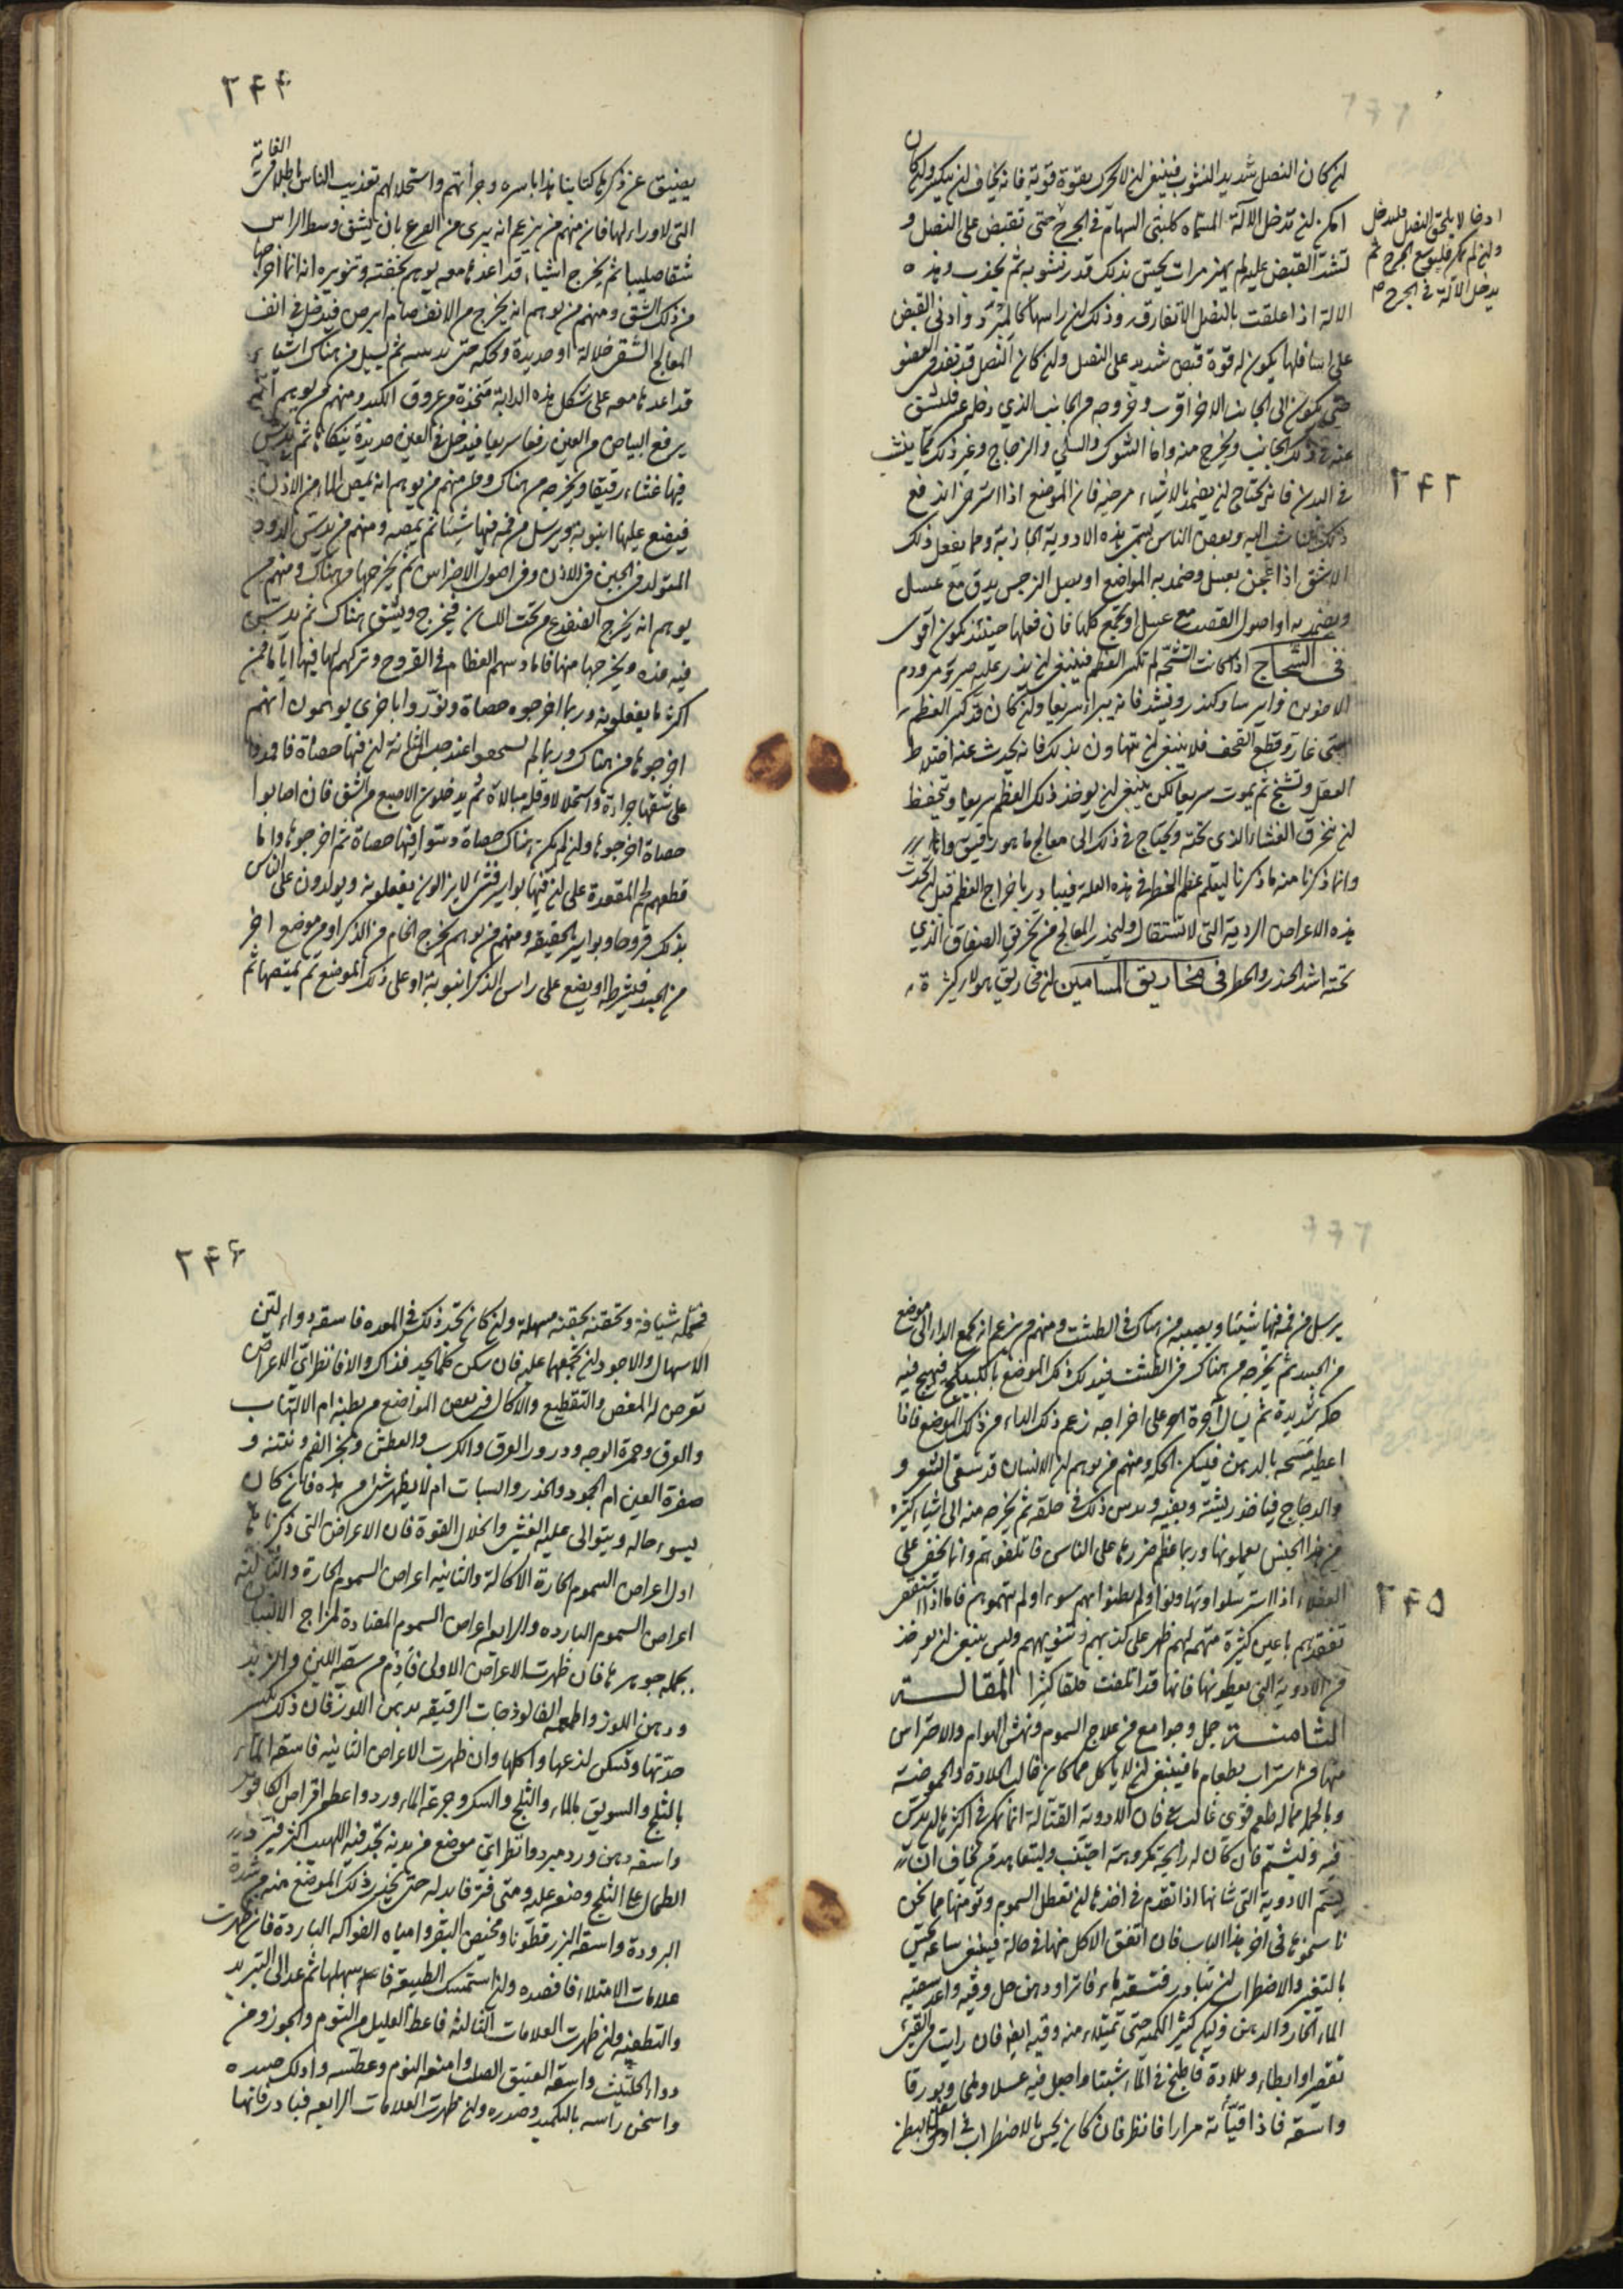 لن كان النصل شديد النشوب فينبغي لن لا يحرك بقوة قوية فانه يخاف لن ينكسر ولن كان
امكن لن تدخل الآلة المسماه كلبتي السهام في الجرح حتى تقبض على النصل و
لتشد القبض عليه ثم يهز مرات بحيث بذلك قدر نشوبه ثم يجذب وهذه
الالة اذا علقت بالنصل لا تفارقه وذلك لن راسها كالمبرد وادنى القبض
على اسافلها يكون له قوة قبض شديد على النصل ولن كان النصل قد نفذ في العضو
حتى يكون الى الجانب الاخر اقرب وخروجه من الجانب الذي دخل عسر فليشق
عنه في ذلك الجانب ويخرج منه واما الشوك والسلي والزجاج وغير ذلك مما ينشب
في البدن فانه يحتاج لن يضمد بالاشياء مرخية فان الموضع اذا استرخى اندفع
ذلك الناشب اليه وبعض الناس يسمي هذه الادوية الجاذبة ومما يفعل ذلك
الاشق اذا عجن بعسل وضمد به المواضع او بصل النرجس يدق مع عسل
ويضمد به او اصول القصب مع عسل او تجمع كلها فان فعلها حينئذ يكون اقوى
في الشجاج اذا كانت الشجة لم تكسر العظم فينبغي لن يذر عليه صبر ومر ودم
الاخوين وايرسا وكندر ويشد فانه يبرا سريعا ولن كان قد كسر العظم
حتى غارت وقطع القحف فلا ينبغي لن يتهاون بذلك فانه يحدث عنه اختلاط
العقل وتشنج ثم يموت سريعا لكن ينبغي لن يوخذ ذلك العظم سريعا ويتحفظ
لن يخرق الغشاء الذي تحته ويحتاج في ذلك الى معالج ماهر رفيق
وانما ذكرنا منه ما ذكرنا ليعلم عظم الخطر في هذه العلة فيبادر باخراج العظم قبل لن تحدث
هذه الاعراض الردية التي لا تستقال وليحذر المعالج من يخرق الصفاق الذي
تحته اشد الحذر والخطر في مخاريق المسامين لن مخاريق هولاء كثيرة
او خا لا يلحق النصل فليدخل
ولن لم يكن فليوسع الجرح ثم
يدخل الآلة في الجرح
٢٤٣
٢٤٤
يضيق عن ذكرها كتابنا هذا باسره وجرأتهم واستحلالهم تعذيب الناس باطلا في الغاية
التي لا وراء لها فان منهم من يزعم انه يبرى من الصرع بان يشق وسط الراس
شقا صليبا ثم يخرج اشياء قد اعدها معه يوهم بخفته وتمويره انه انما اخرجها
من ذلك الشق ومنهم من يوهم انه يخرج من الانف صام ابرص فيدخل في انف
المعالج الشقي خلالة او حديدة ويحكه حتى يدميه ثم يسيل من هناك اشياء
قد اعدها معه على شكل هذه الدابة متخذة من عروق الكبد ومنهم من يوهم انه
يرفع البياض من العين رفعا سريعا فيدخل في العين حديدة ينكاها ثم يدس
فيها غشاء رقيقا ويخرجه من هناك ومنهم من يوهم انه يمص الماء من الاذن
فيضع عليها انبوبة ويرسل من فمه فيها شيئا ثم يمصه ومنهم من يدس الدود
المتولد في الجبن في الاذن وفي اصول الاضراس ثم يخرجها من هناك ومنهم من
يوهم انه يخرج الضفدع من تحت اللسان فيخرج ويشق هناك ثم يدس
فيه غدة ويخرجها منها فاما دسهم العظام في القروح وتركهم لها فيها اياما فمن
اكثر ما يفعلونه وربما اخرجوه حصاة ودوروا باخرى يوهمون انهم
اخرجوها من هناك وربما لم عند جس المثانة لن فيها حصاة فاقدموا
على شقها جراءة واستحلالا وقلة مبالاة ثم يدخلون الاصبع في الشق فان اصابوا
حصاة اخرجوها ولن لم يكن هناك حصاة دسوا فيها حصاة ثم اخرجوها واما
قطعهم لحم المقعدة على لن فيها بواسير فشيء لا يزالون يفعلونه ويولدون على الناس
بذلك قروحا وبواسير بالحقيقة ومنهم من يوهم يخرج الخام من الذكر او من موضع اخر
من الجسد فيشرطه او يضع على راس الذكر انبوبة او على ذلك الموضع ثم يمتصها ثم
يرسل من فمه فيها شيئا ويصبه من هناك في الطشت ومنهم من يزعم انه يجمع الداء الى موضع
من الجسد ثم يخرجه من هناك في الطشت فيدلك ذلك الموضع بالكبيكج فيهيج فيه
حكه شديدة ثم يسال اجرة على اخراجه زعم ذلك الداء من ذلك الموضع فاذا
اعطيه مسحه بالدهن فيسكن الحكه ومنهم من يوهم لن الانسان قد سقى الشعر و
والزجاج فياخذ ريشة ويقيه ويدس ذلك في حلقه ثم يخرجه منه الى اشياء كثيره
من هذا الجنس يعملونها وربما عظم ضررها على الناس فاتلفوهم وانما تخفى على
العقلاء اذا استرسلوا وتهاونوا ولم يظنوا بهم سوء او لم يتهموهم فاما اذا
تفقدهم باعين كثيرة متهمه لهم ظهر على كذبهم وتمويههم وليس ينبغي لن يوخذ
من الادوية التي يعطونها فانها قد اتلفت خلقا كثيرا المقالة
الثامنة جمل وجوامع من علاج السموم ونهش الهوام والاحتراس
منها من استراب بطعام ما فينبغي لن لا ياكل مما كان غالب الحلاوة والحموضة
وبالجملة مما له طعم قوى غالب فان الادوية القتالة انما تمكن في اكثر ما له يدس
فيه وليشتم فان كان له رايحة كريهة اجتنب وليتعاهد من يخاف ان
يسم الادوية التي شانها اذا تقدم في اخذها لن تبطل السموم وتوهنها مما نحن
ذاكروها في اخر هذا الباب فان اتفق الاكل منها في حالة فينبغي ساعة يحس
بالتغير والاضطراب لن يتبادر فتسقيه ماء فاترا ودهن حل وقيئه واعد سقيه
الماء الحار والدهن وليكن كثير الكمية حتى تمتلئ منه وقيه ايضا فان رايت في القيئ
تقصيرا وابطاء وبلادة فاطبخ في الماء شبتا واجعل فيه عسلا وملحا وبورقا
واسقه فاذا قيأته مرارا فانظر فان كان يحس بالاضطراب في اسفل البطن
٢٤٥
٢٤٦
فحمله شيافة وتحقنه بحقنة مسهلة ولن كان تجد ذلك في المعده فاسقه دواء لين
الاسهال والاجود لن تجمعهما عليه فان سكن كلما يجد فذاك والا فانظر اي الاعراض
تعرض له المغص والتقطيع والاكال في بعض المواضع من بطنه ام الالتهاب
والعرق وحمرة الوجه ودرور العرق والكرب والعطش وبخر الفم ونتنه و
صفرة العين ام الجمود والخدر والسبات ام لا يظهر شئ من هذه فان كان
يسوء حاله ويتوالى عليه الغشي وانحلال القوة فان الاعراض التي ذكرناها
اولا اعراض السموم الحارة الاكالة والثانيه اعراض السموم الحارة والثالثة
اعراض السموم البارده والرابع اعراض السموم المضادة لمزاج الانسان
بجملة جوهرها فان ظهرت الاعراض الاولى فادم من سقيه اللبن والزبد
ودهن اللوز واطعمه الفالوذجات الرقيقه بدهن اللوز فان ذلك يكسر
حدتها ويسكن لذعها واكلها وان ظهرت الاعراض الثانيه فاسقه الماء
بالثلج والسويق بالماء والثلج والسكر وجرعه الماء ورد واعطه اقراص الكافور
واسقه دهن ورد مبرد وانظر اي موضع من بدنه تجد فيه اللهيب اكثر فبرد
الطحال على الثلج وضعه عليه ومتى فتر فابدله حتى يخدر ذلك الموضع منه من شدة
البرودة واسقه البزرقطونا ومخيض البقر وامياه الفواكه الباردة فان ظهرت
علامات الامتلاء فافصده ولن استمسك الطبيعة فاسهلها ثم عد الى التبريد
والتطفئه ولن ظهرت العلامات الثالثة فاعط العليل من الثوم والجوز ومن
دواء الحلتيت واسقه العتيق الصلب وامنعه النوم وعطسه وادلك جسده
واسخن راسه بالتكميد وصدره ولن ظهرت العلامات الرابعه فبادر فانها